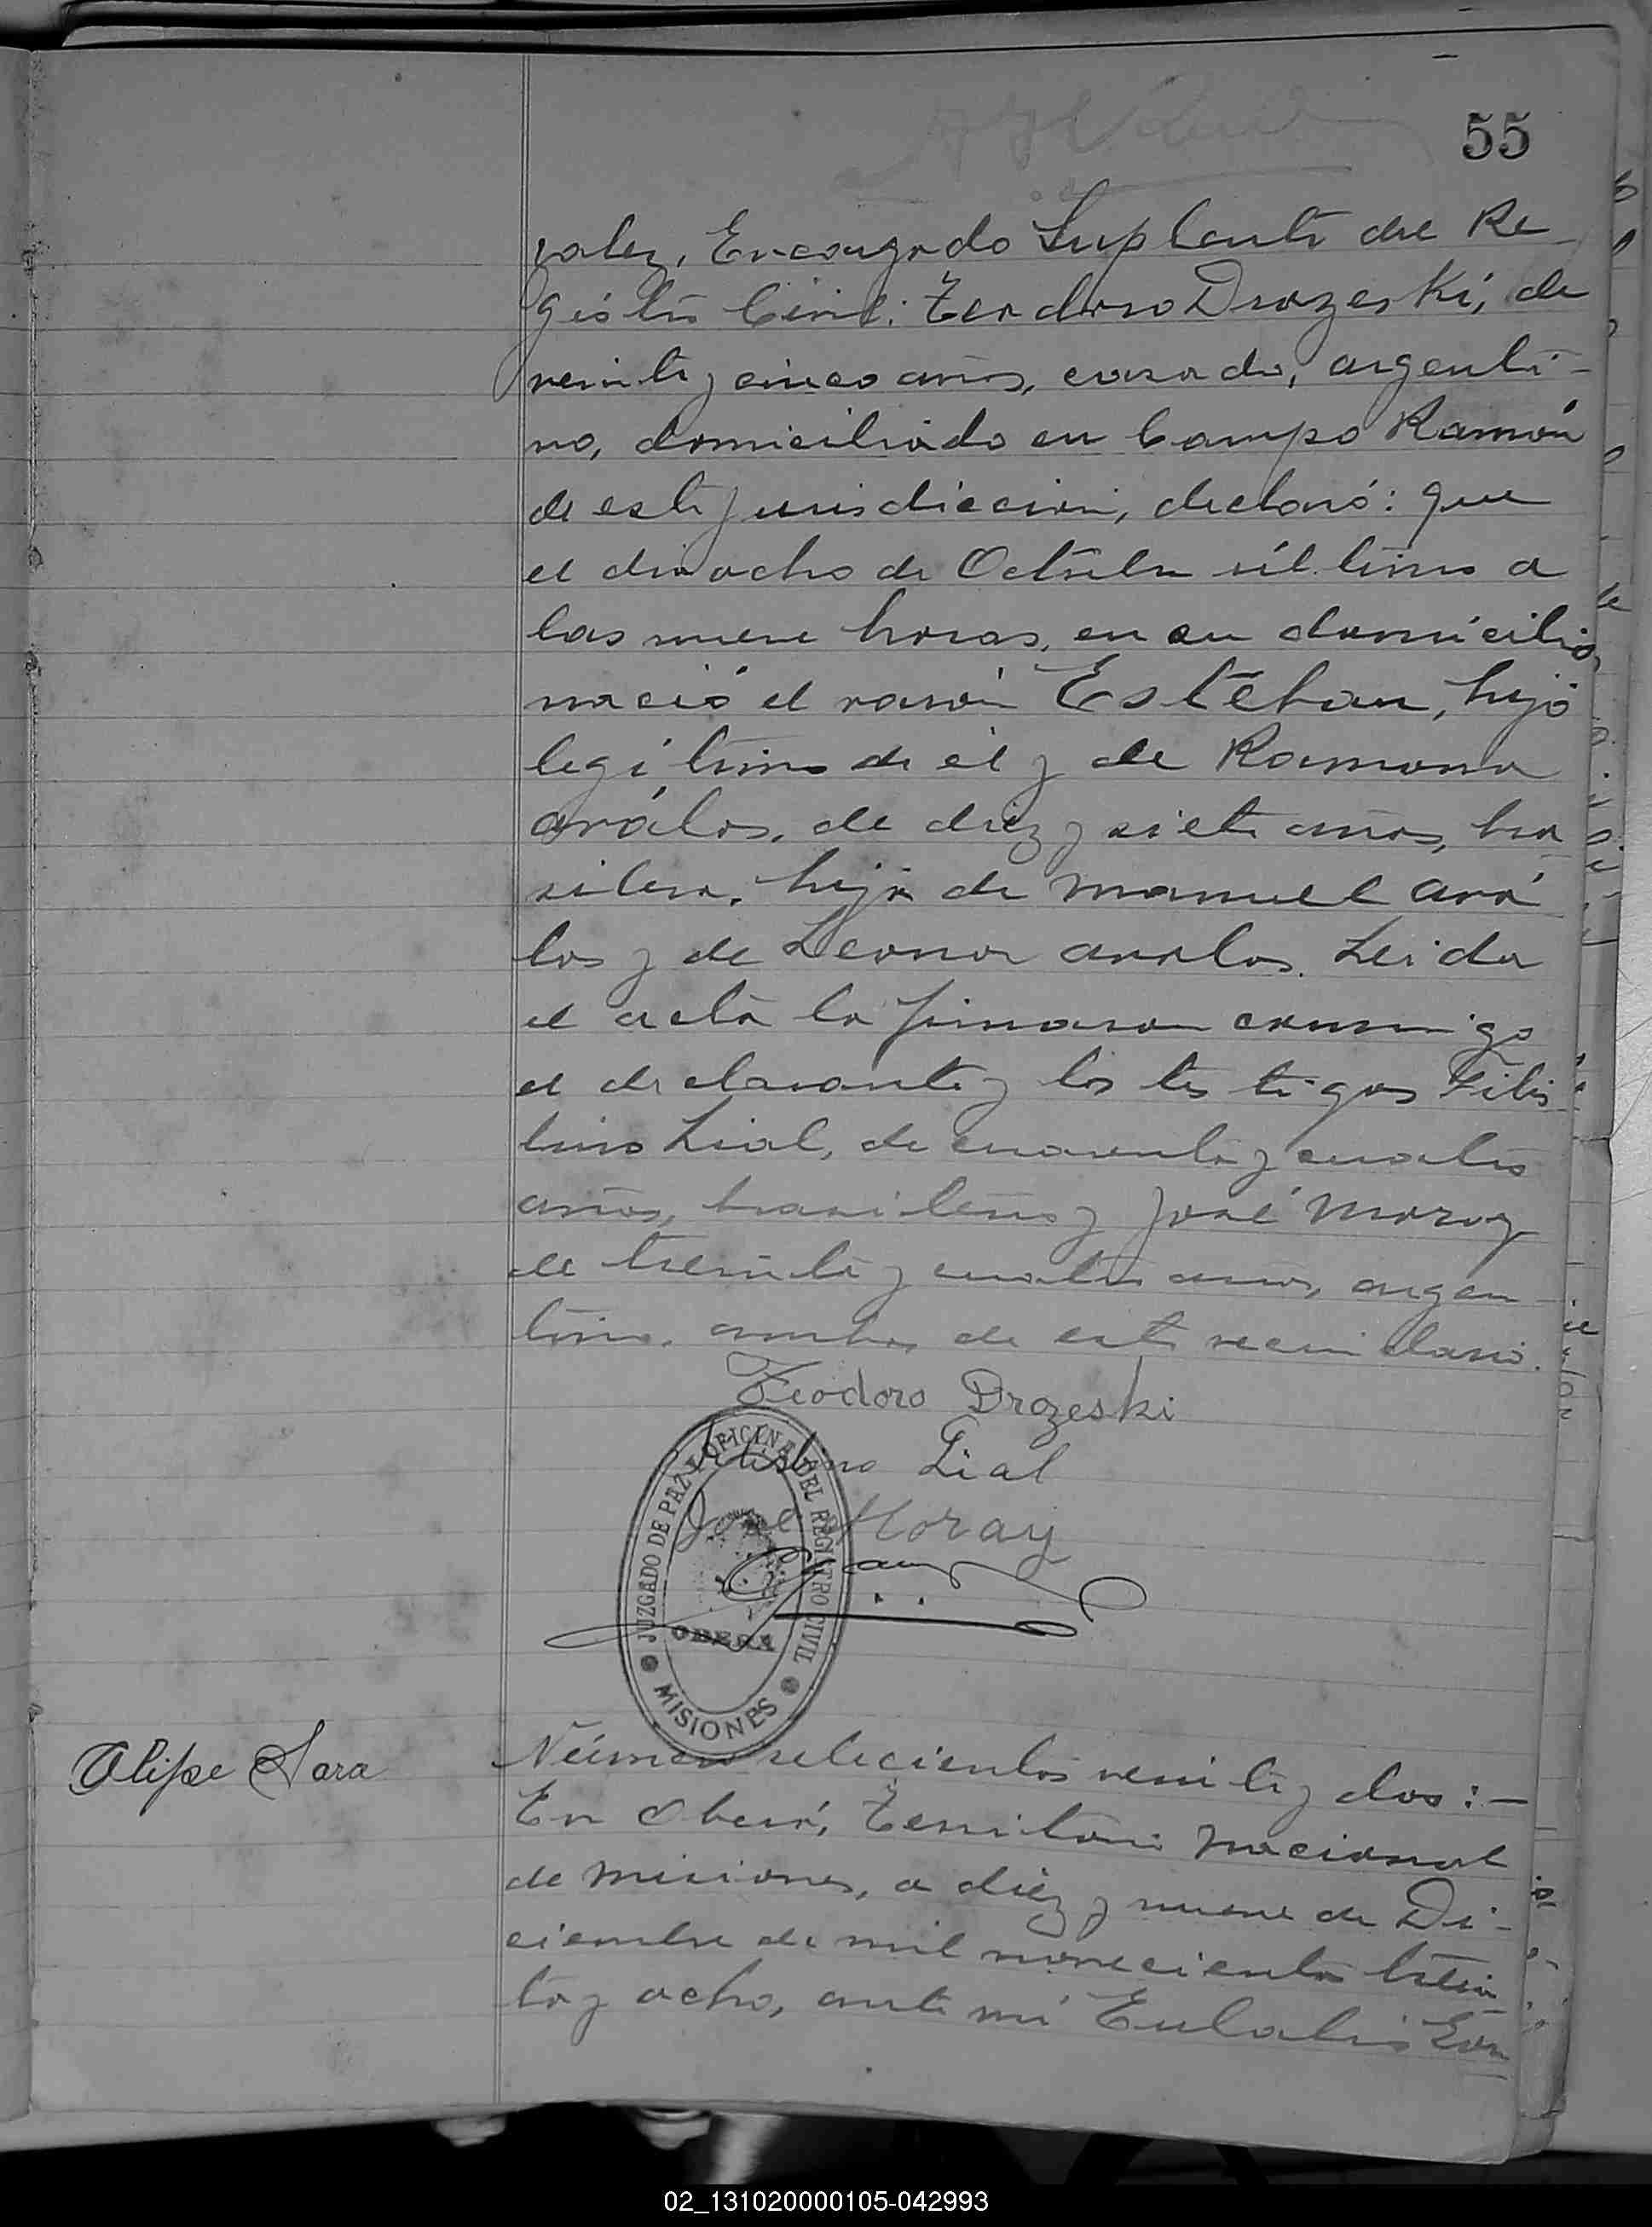 55
zalez, Encargado Suplente del Re
gistro Civil: Teodoro Drozeski, de
veinte y cinco años, casado, argenti-
no, domiciliado en Campo Ramón
de esta jurisdicción, declaró: que
el dia ocho de Octubre último a
las nueve horas, en su domicilio
nació el varón Esteban, hijo
legítimo de él y de Ramona
Arálos, de diez y siete años, bra
silera, hija de Manuel Ará
los y de Leonor Aralos. Leida
el acta la firmaron conmigo
el declarante y los testigos
Lial, de cuarenta y cuatro
años, brasileño y José Moroz
de treinta y cuatro años, argen
tino, ambos de este vecindario.
Teodoro Drozeski
Lial
José Moray
JUZGADO DE PAZ Y OFICINA DEL REGISTRO CIVIL
OBERA
MISIONES
Olipe Sara
Número setecientos veinte y dos:-
En Oberá, Territorio Nacional
de Misiones, a diez y nueve de Di-
ciembre de mil novecientos trein
ta y ocho, ante mi Eulalio Gon
02_131020000105-042993